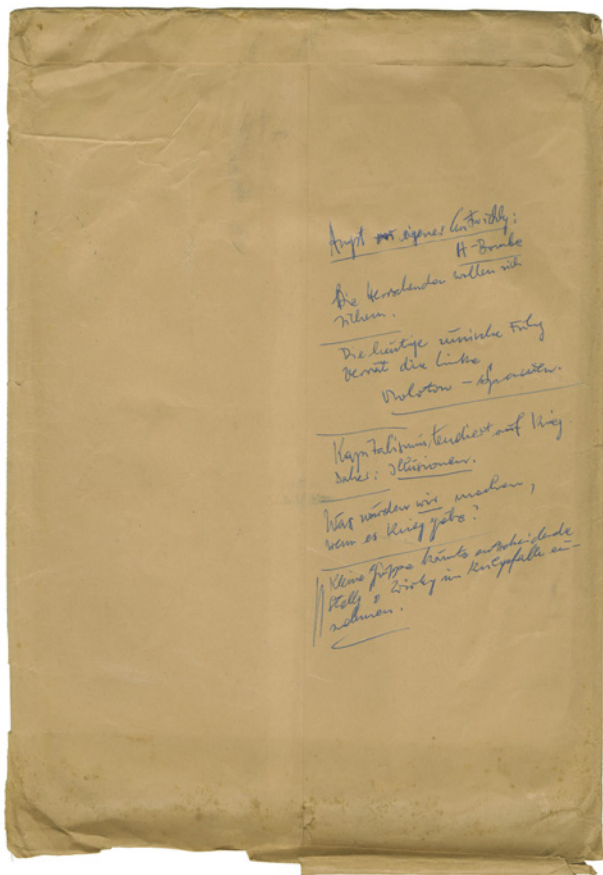 Angst vor eigener Entwicklg:
H-Bombe
Die Herrschenden wollen sich
sichern.
Die heutige russische Führg
verrät die Linke
Molotow –
Kapitalismus tendiert auf Krieg
daher: Illusionen.
Was würden wir machen,
wenn es Krieg gäbe?
Kleine Gruppe könnte entscheidende
Stellg u Wirkg im Kriegsfalle ein-
nehmen.